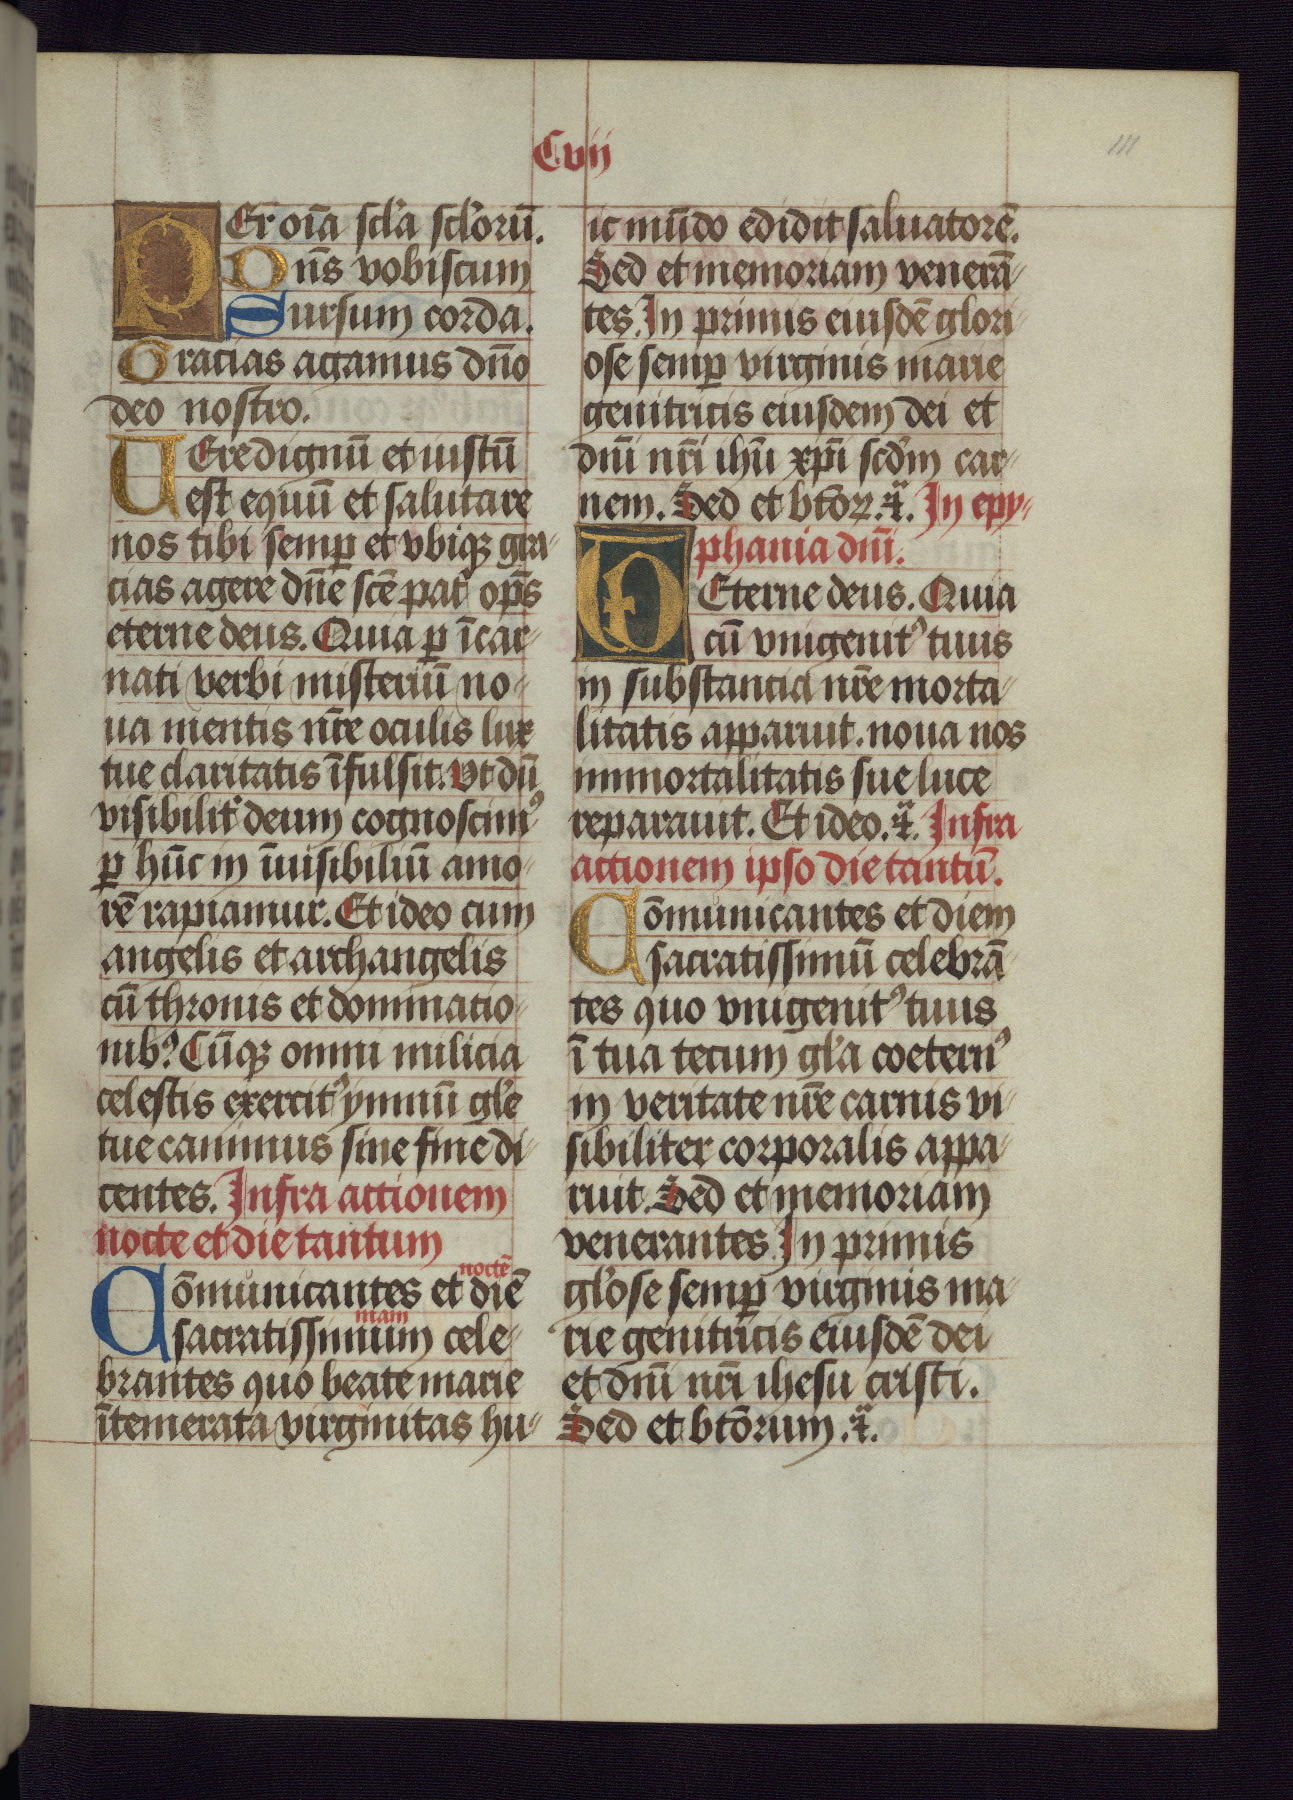 Cvii
111
Per oīa scl'a scl'orū.
Dn̄s vobiscum
Sursum corda.
Gracias agamus dn̄o
deo nostro.
Vere dignū et iustū
est equū et salutare
nos tibi semꝑ et vbiqꝫ gra-
cias agere dn̄e sc̄e pat̄ opn̄s
eterne deus. Quia ꝑ īcar-
nati verbi misteriū no-
ua mentis nr̄e oculis lux
tue claritatis īfulsit. Vt dū
visibilit̄ deum cognoscimꝰ
ꝑ hūc in īuisibiliū amo-
rē rapiamur. Et ideo cum
angelis et archangelis
cū thronis et dominatio-
nibꝰ Cūqꝫ omni milicia
celestis exercitꝰ ymnū gl'e
tue canimus sine fine di-
centes. Infra actionem
nocte et die tantum
noctē
Cōmunicantes et diē
mam
sacratissimum cele-
brantes quo beate marie
ītemerata virginitas hu-
ic mūdo edidit saluatorē.
Sed et memoriam venerā-
tes. In primis eiusdē glori-
ose semꝑ virginis marie
genitricis eiusdem dei et
dn̄i nr̄i ihū xp̄i scd'm car-
nem. Sed et btōꝝ. ⁊c̄. In epy-
phania dn̄i.
O Eterne deus. Quia
cū vnigenitꝰ tuus
in substantia nr̄e morta-
litatis apparuit. noua nos
immortalitatis sue luce
reparauit. Et ideo. ⁊c̄. Infra
actionem ipso die tantū.
Cōmunicantes et diem
sacratissimū celebrā-
tes quo vnigenitꝰ tuus
ī tua tecum gl'a coeternꝰ
in veritate nr̄e carnis vi-
sibiliter corporalis appa-
ruit. Sed et memoriam
venerantes In primis
gl'ose semꝑ virginis ma-
rie genitricis eiusdē dei
et dn̄i nr̄i ihesu cristi.
Sed et btōrum. ⁊c̄.